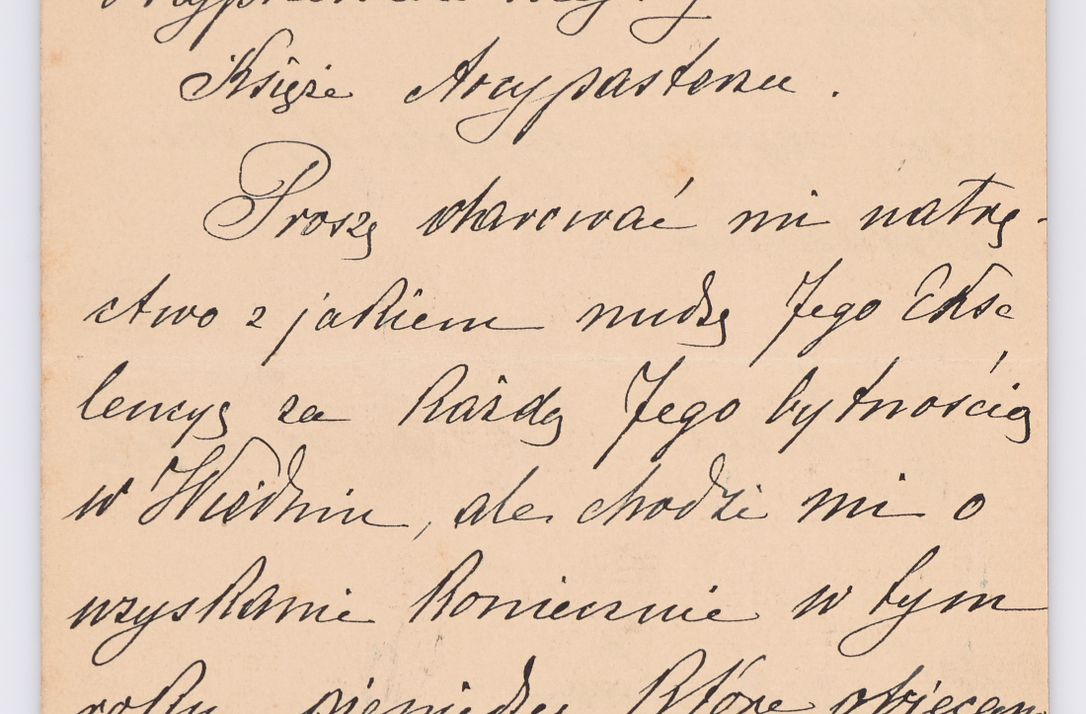 Księże Arcypasterzu.
Proszę darować mi natrę-
ctwo z jakiem nudzę Jego Eksc
lencyę za każdą Jego bytnością
w Wiedniu, ale chodzi mi o
uzyskanie koniecznie w tym
roku pieniędzy które obiecan